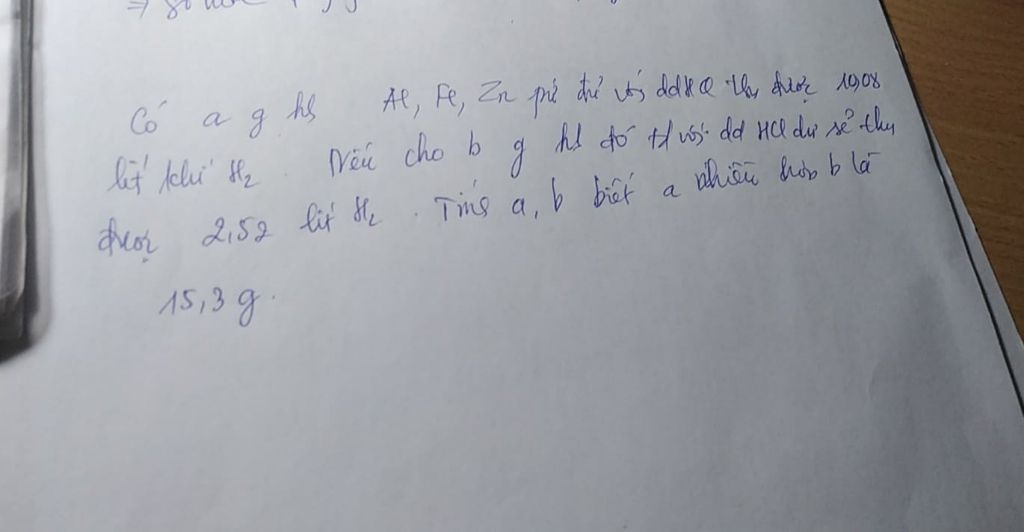 Có a g hh Al, Fe, Zn pứ đủ với ddHCl thu được 10,08
lít khí H2. Nếu cho b g hh đó t/d với dd HCl dư sẽ thu
được 2,52 lít H2. Tính a, b biết a nhiều hơn b là
15,3 g.